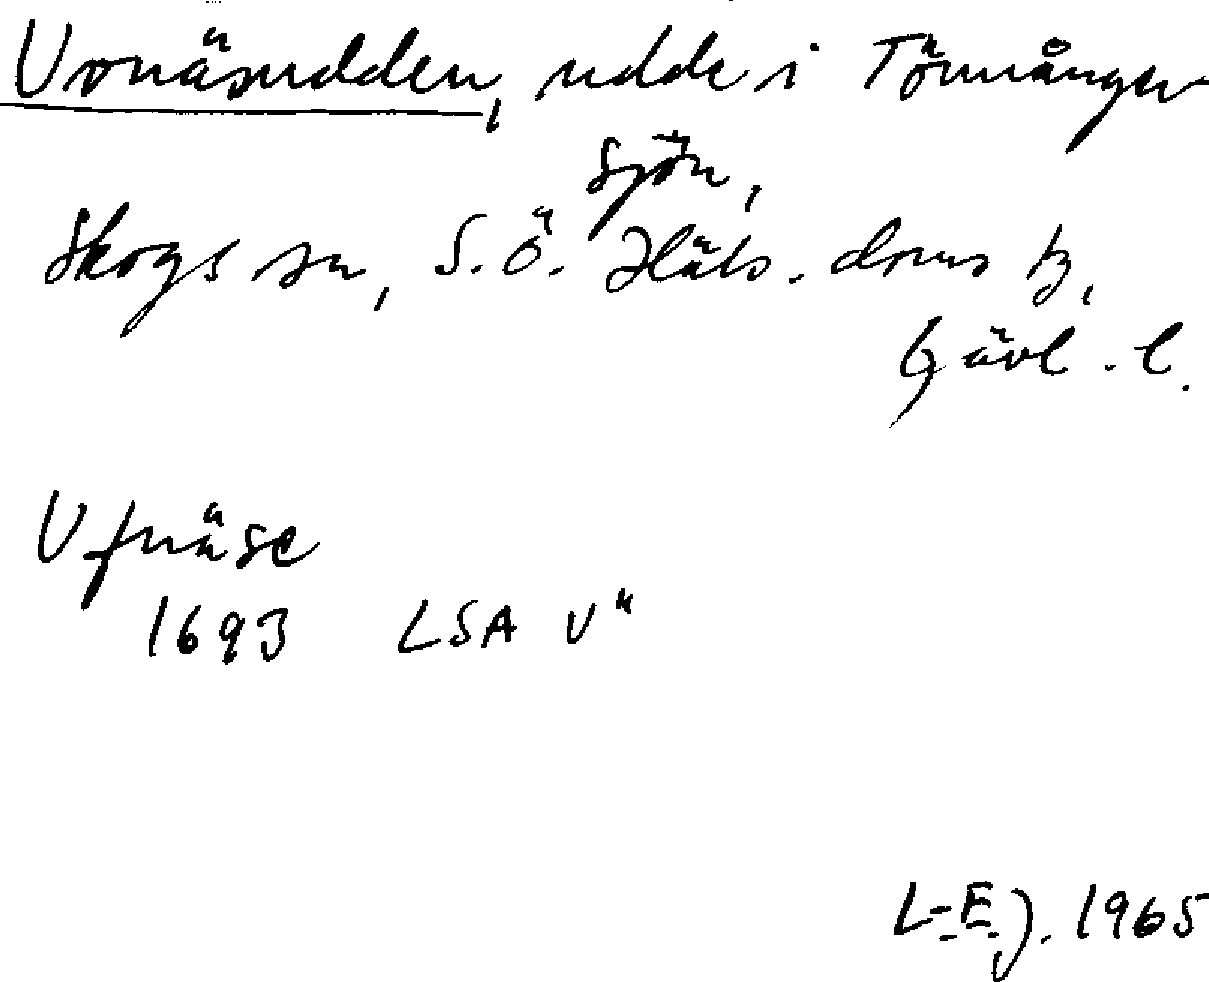 Uvnäsudden, udde i Tönnånger
sjön,
Skogs sn, S.Ö. Häls. doms tg,
Gävl. l.
Ufnäse
1693 LSA V"
L-E.J. 1965